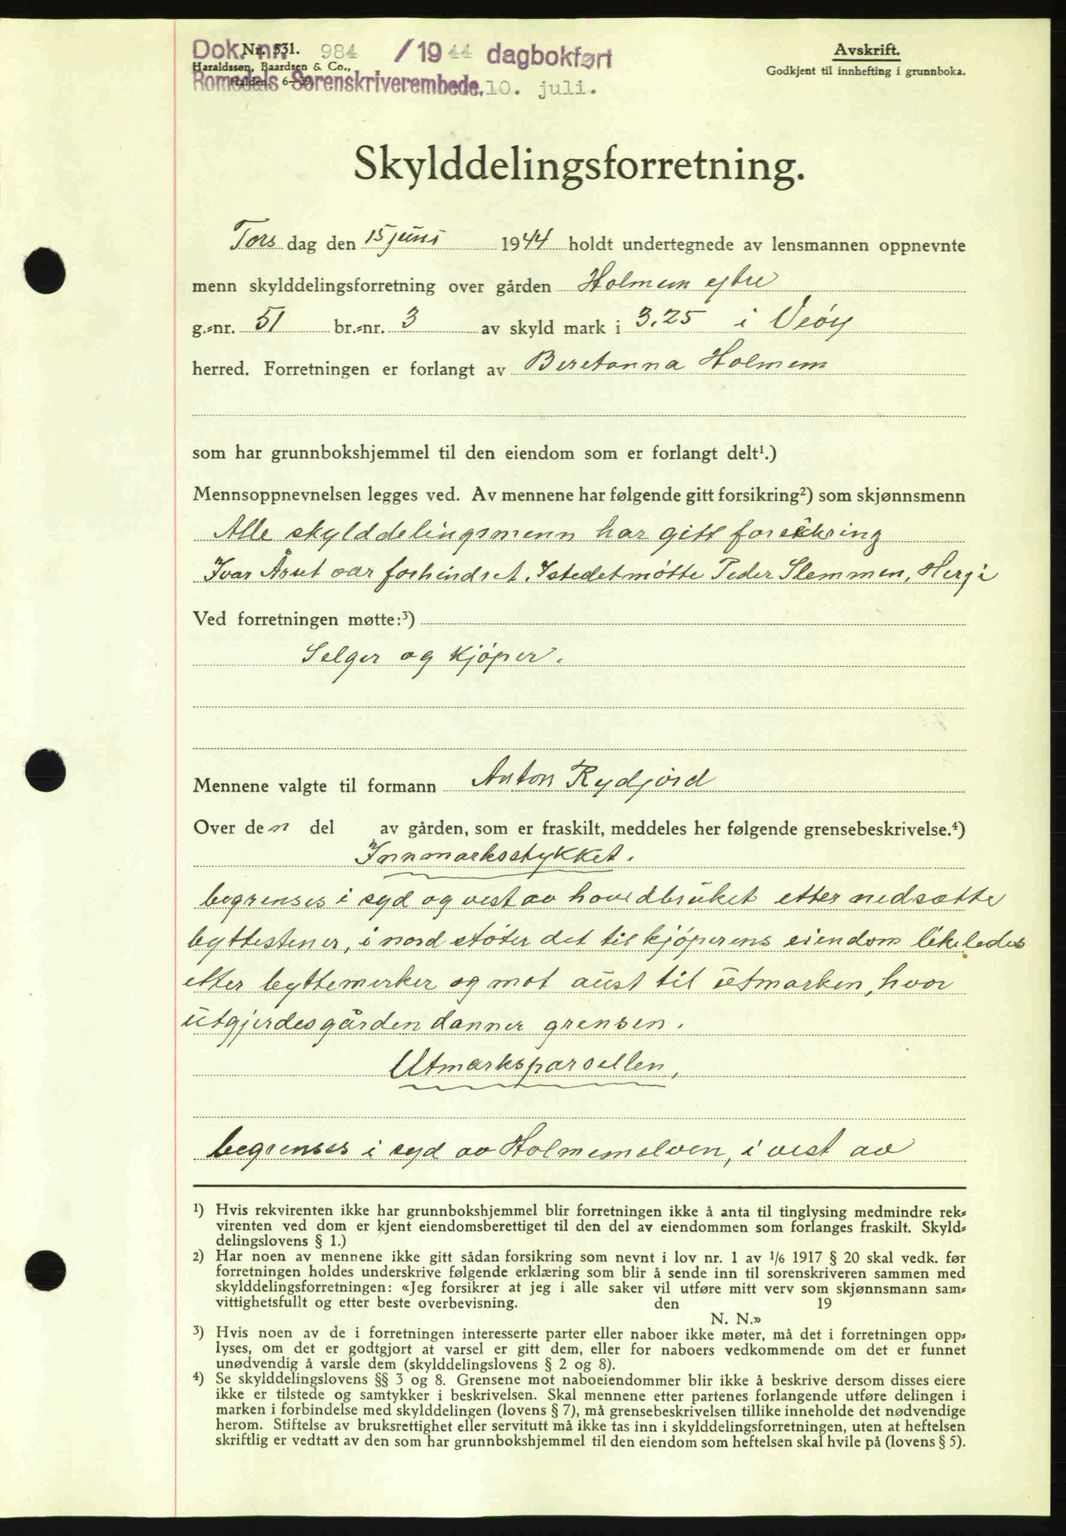 Dok. nr. 984 /1944 dagbokført
Nr. 531.
Haraldssøn, Baardsen & Co.,
Romsdals Sorenskriverembede, 10. juli.
Avskrift.
Godkjent til innhefting i grunnboka.
Skylddelingsforretning.
Tors dag den 15 juni 1944 holdt undertegnede av lensmannen oppnevnte
menn skylddelingsforretning over gården Holmem ytre
g.-nr. 51 br.-nr. 3 av skyld mark i 3,25 i Veøy
herred. Forretningen er forlangt av Beretanna Holmem
som har grunnbokshjemmel til den eiendom som er forlangt delt¹.)
Mennsoppnevnelsen legges ved. Av mennene har følgende gitt forsikring²) som skjønnsmenn
Alle skylddelingsmenn har gitt forsikring
Ivar Årset var forhindret. Istedetmøtte Peder Slemmen, Hergi
Ved forretningen møtte:³)
Selger og kjøper.
Mennene valgte til formann Anton Rydjord
Over den del av gården, som er fraskilt, meddeles her følgende grensebeskrivelse.⁴)
Innmarksstykket.
begrenses i syd og vest av hovedbruket etter nedsatte
byttestener, i nord støter det til kjøperens eiendom likeledes
etter byttemerker og mot aust til utmarken, hvor
utgjerdesgården danner grensen.
Utmarksparsellen,
begrenses i syd av Holmemelven, i vest av
¹) Hvis rekvirenten ikke har grunnbokshjemmel blir forretningen ikke å anta til tinglysing medmindre rek-
virenten ved dom er kjent eiendomsberettiget til den del av eiendommen som forlanges fraskilt. Skyld-
delingslovens § 1.)
²) Har noen av mennene ikke gitt sådan forsikring som nevnt i lov nr. 1 av ¹/₆ 1917 § 20 skal vedk. før
forretningen holdes underskrive følgende erklæring som blir å sende inn til sorenskriveren sammen med
skylddelingsforretningen: «Jeg forsikrer at jeg i alle saker vil utføre mitt verv som skjønnsmann sam-
vittighetsfullt og etter beste overbevisning. den 19
N. N.»
³) Hvis noen av de i forretningen interesserte parter eller naboer ikke møter, må det i forretningen opp-
lyses, om det er godtgjort at varsel er gitt dem, eller for naboers vedkommende om det er funnet
unødvendig å varsle dem (skylddelingslovens § 2 og 8).
⁴) Se skylddelingslovens §§ 3 og 8. Grensene mot naboeiendommer blir ikke å beskrive dersom disses eiere
ikke er tilstede og samtykker i beskrivelsen. Skal mennene etter partenes forlangende utføre delingen i
marken i forbindelse med skylddelingen (lovens § 7), må grensebeskrivelsen tillike inneholde det nødvendige
herom. Stiftelse av bruksrettighet eller servitutt må ikke tas inn i skylddelingsforretningen, uten at heftelsen
skriftlig er vedtatt av den som har grunnbokshjemmel til den eiendom som heftelsen skal hvile på (lovens § 5).